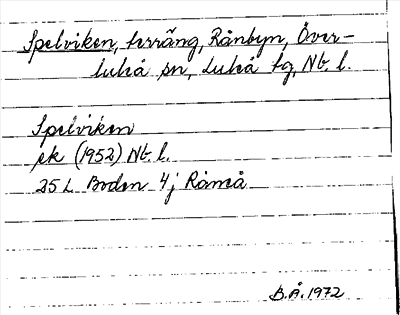 Spelviken, terräng, Rånbyn, Över-
luleå sn, Luleå tg, Nb. l.
Spelviken
ek (1952) Nb. l.
25 L Boden 4j Råneå
B.Å. 1972